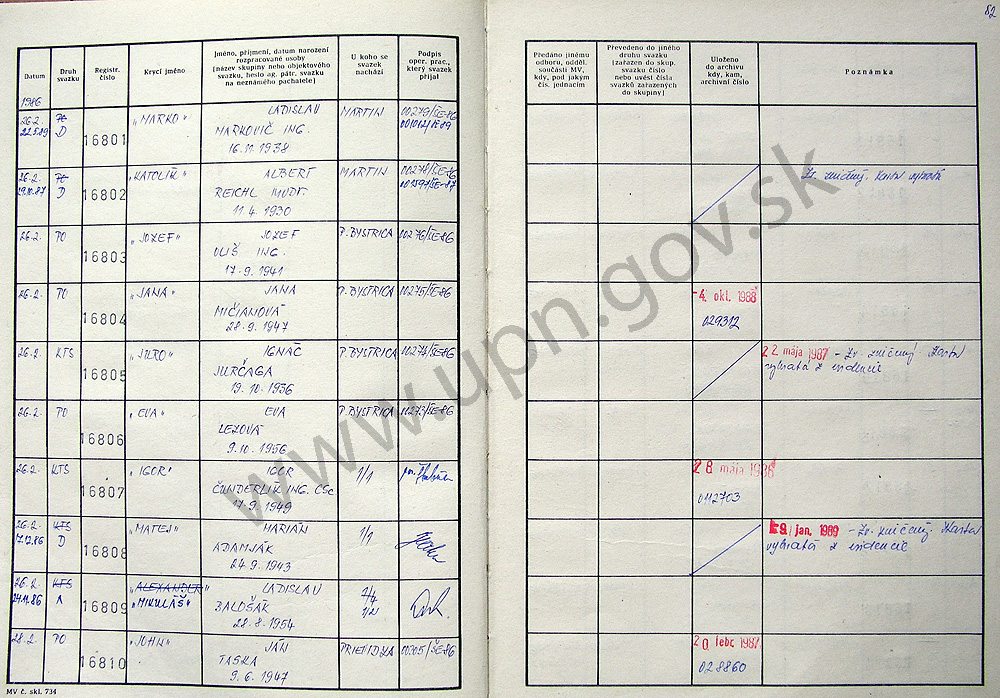 82
Datum
Druh
svazku
Registr.
číslo
Krycí jméno
Jméno, příjmení, datum narození
rozpracované osoby
(název skupiny nebo objektového
svazku, heslo ag. pátr. svazku
na neznámého pachatele)
U koho se
svazek
nachází
Podpis
oper. prac.,
který svazek
přijal
Předáno jinému
odboru, odděl.
součásti MV,
kdy, pod jakým
čís. jednacím
Převedeno do jiného
druhu svazku
(zařazen do skup.
svazku číslo
nebo uvést čísla
svazků zařazených
do skupiny)
Uloženo
do archivu
kdy, kam,
archivní číslo
Poznámka
1986
26.2. 16801 „MARKO" LADISLAV MARTIN 00279/ŠE-86
22.5.89 D MARKOVIČ ING.
16.11.1938
26.2. 16802 „KATOLÍK" ALBERT MARTIN 00278/ŠE-86
D REICHL MUDr.
11.4.1930
26.2. PO 16803 „JOZEF" JOZEF P. BYSTRICA 00276/ŠE-86
ULIŠ ING.
17.9.1941
26.2. PO 16804 „JANA" JANA P. BYSTRICA 00275/ŠE-86 4. okt. 1988
MIČIANOVÁ 029312
28.9.1947
26.2. KTS 16805 „JURO" IGNÁC P. BYSTRICA 00274/ŠE-86 22 mája 1987 - Zv. zničený Kartot
JURČAGA vybratá z evidencie
19.10.1936
26.2. PO 16806 „EVA" EVA P. BYSTRICA 00273/ŠE-86
LEZOVÁ
9.10.1956
26.2. KTS 16807 „IGOR" IGOR 1/1 28 mája 1986
ČUNDERLÍK ING. CSc 0112703
17.9.1949
26.2. KTS 16808 „MATEJ" MARIÁN 1/1 jan. 1989 - Zv. zničený Kartot
17.12.86 D ADAMJÁK vybratá z evidencie
24.9.1943
26.2. KTS 16809 „ALEXANDER" LADISLAV
24.11.86 A „MIKULÁŠ" BALOŠÁK
28.8.1954
28.2. PO 16810 „JOHN" JÁN PRIEVIDZA 00305/ŠE-86 20 febr. 1987
TASKA 028860
9.6.1947
MV č. skl. 734
www.upn.gov.sk